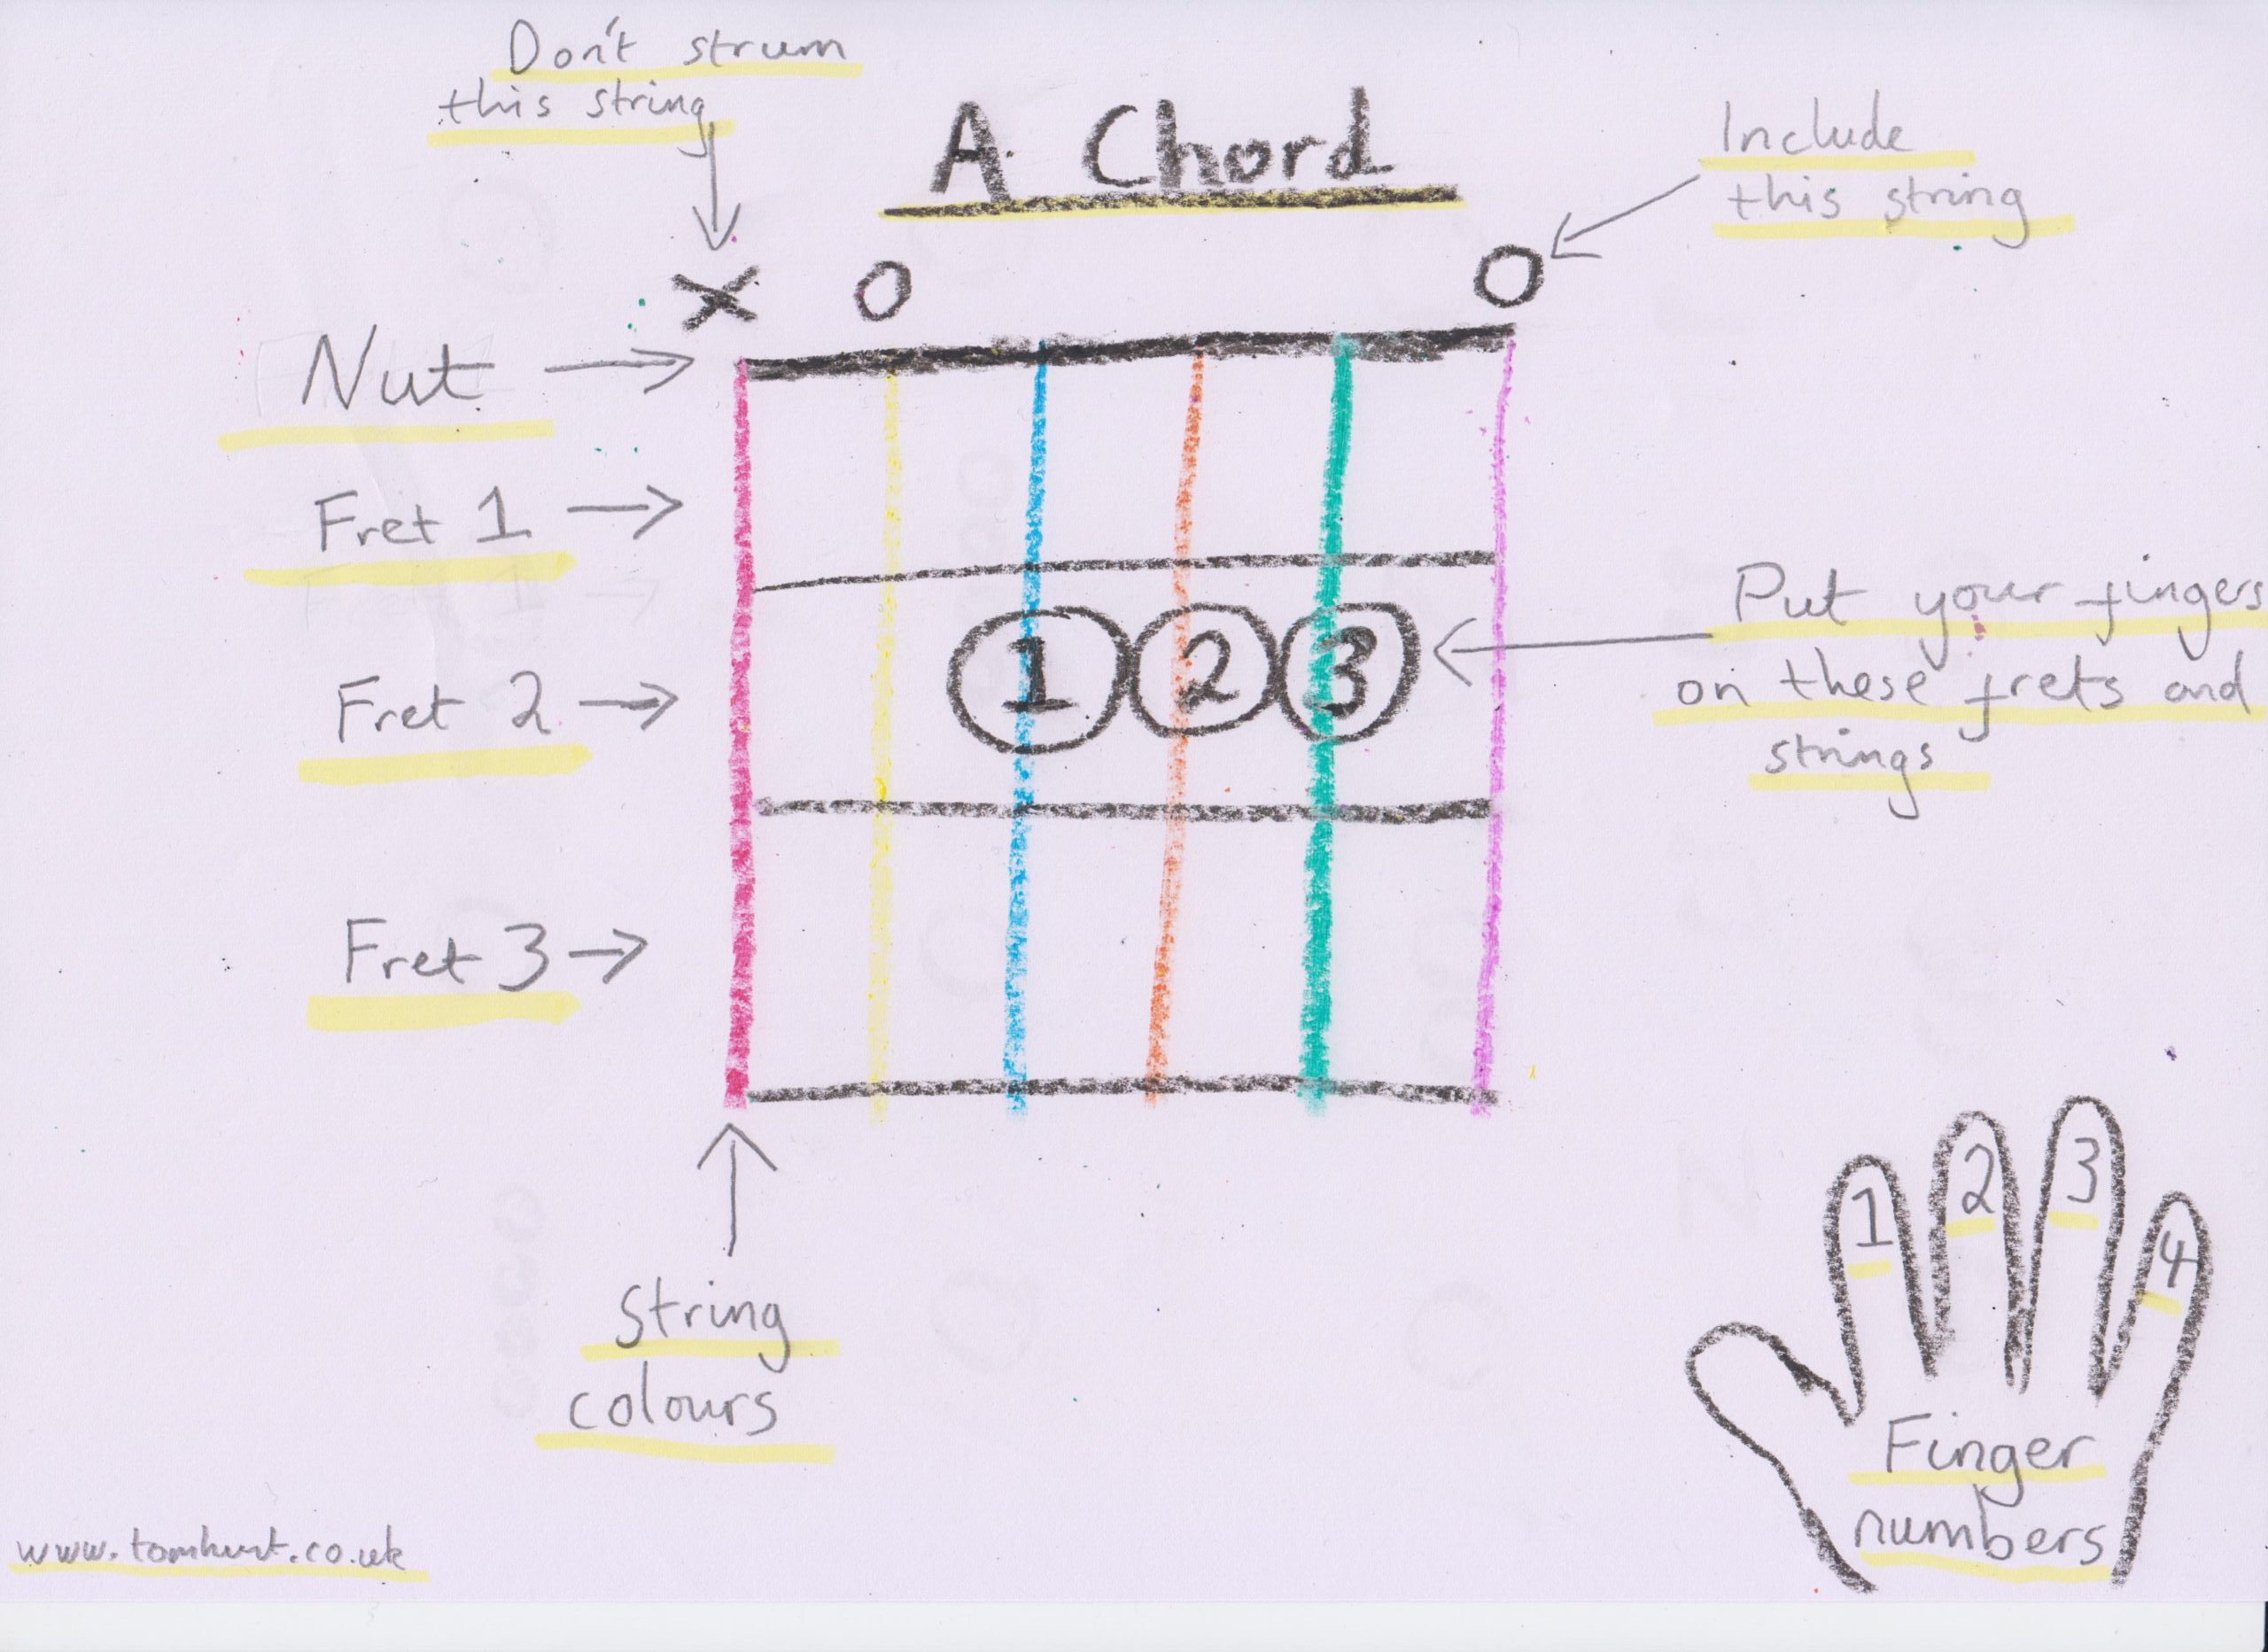 Don't strum
this string
A Chord
Include
this string
X O O
Nut
Fret 1
Put your fingers
on these frets and
strings
1 2 3
Fret 2
Fret 3
String
colours
1 2 3 4
Finger
numbers
www.tomhurt.co.uk